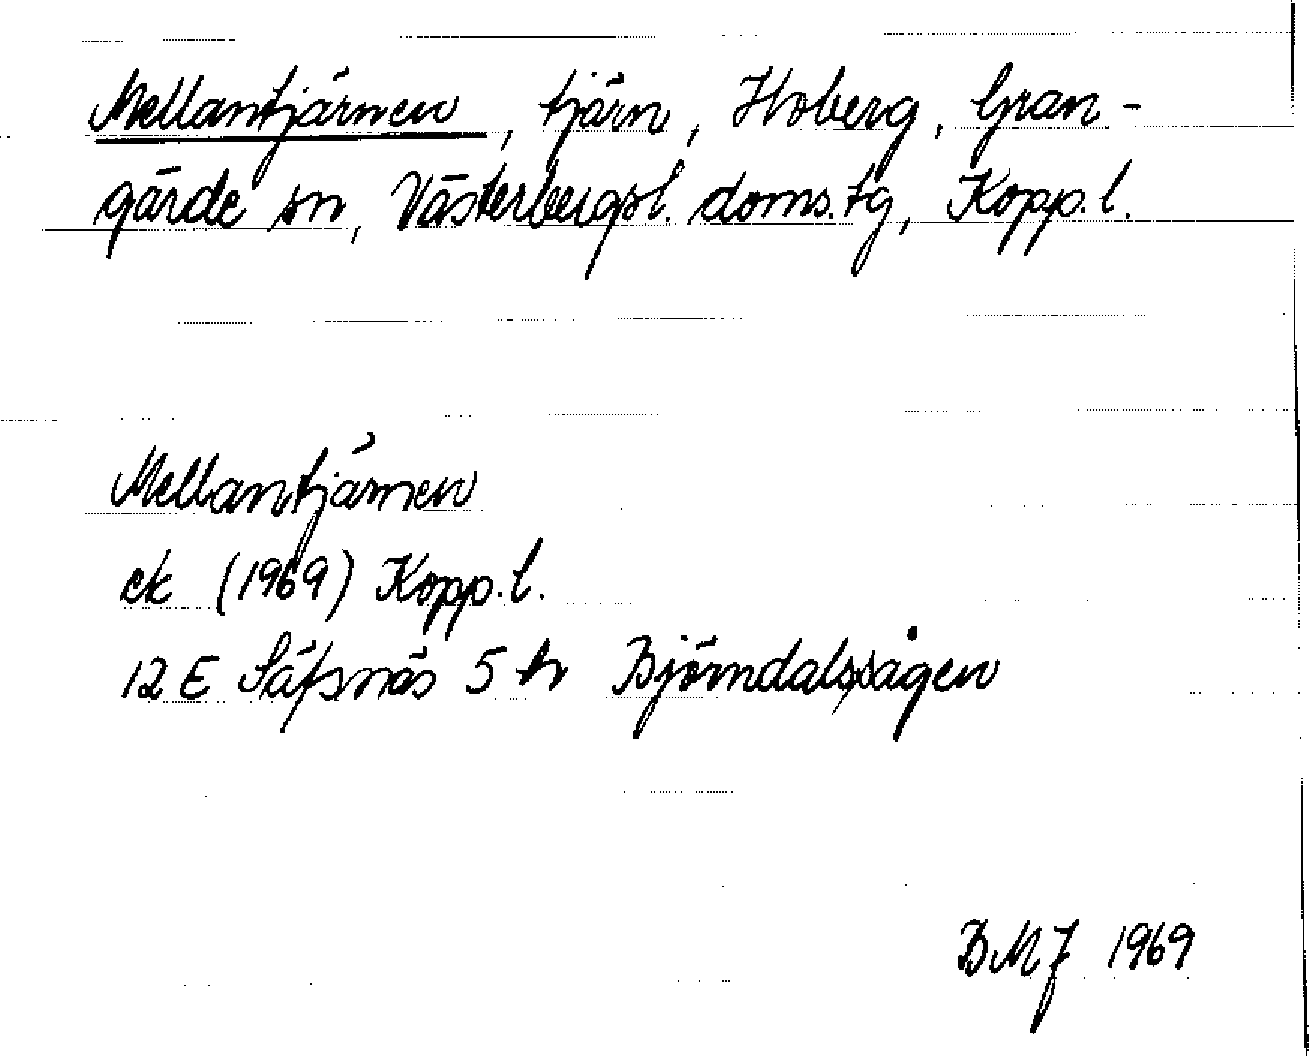 Mellantjärnen, tjärn, Hoberg, Gran-
gärde sn, Västerbergsl. doms.tg, Kopp. l.
Mellantjärnen
ek (1969) Kopp. l.
12 E Säfsnäs 5 h Björndalssågen
BMJ 1969